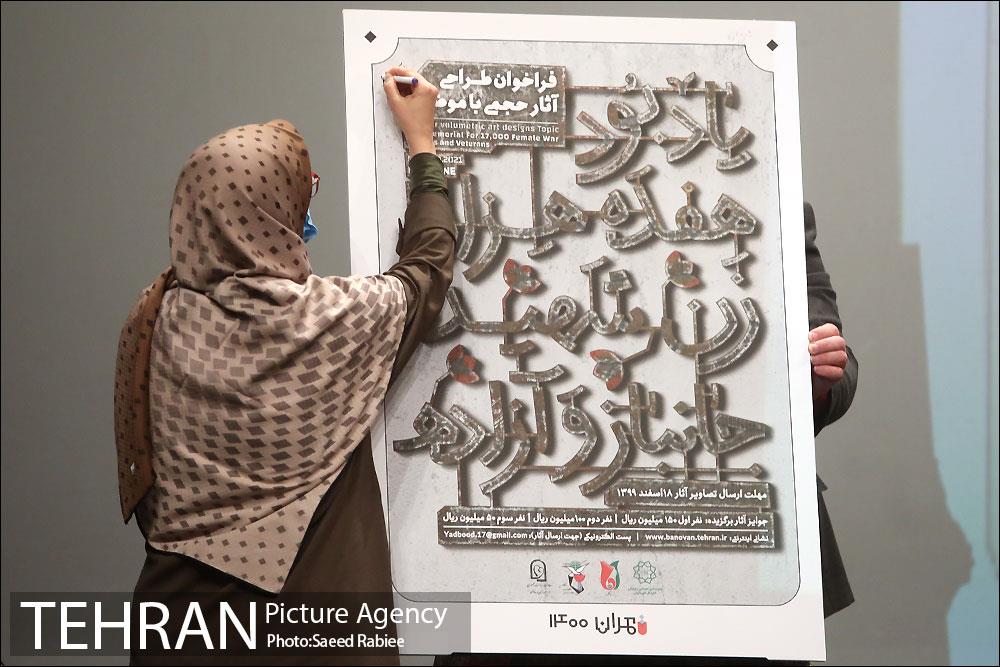 فراخوان طراحی
آثار حجمی با موض
volumetric art designs Topic
emorial For 17,000 Female War
s and Veterans
2021
NE
یادبود
هفده هزار
زن شهید
جانباز و آزاده
مهلت ارسال تصاویر آثار ۱۸ اسفند ۱۳۹۹
جوایز آثار برگزیده: نفر اول ۱۵۰ میلیون ریال | نفر دوم ۱۰۰ میلیون ریال | نفر سوم ۵۰ میلیون ریال
نشانی اینترنتی: www.banovan.tehran.ir | پست الکترونیکی (جهت ارسال آثار): Yadbood.17@gmail.com
تهران ۱۴۰۰
TEHRAN Picture Agency
Photo:Saeed Rabiee